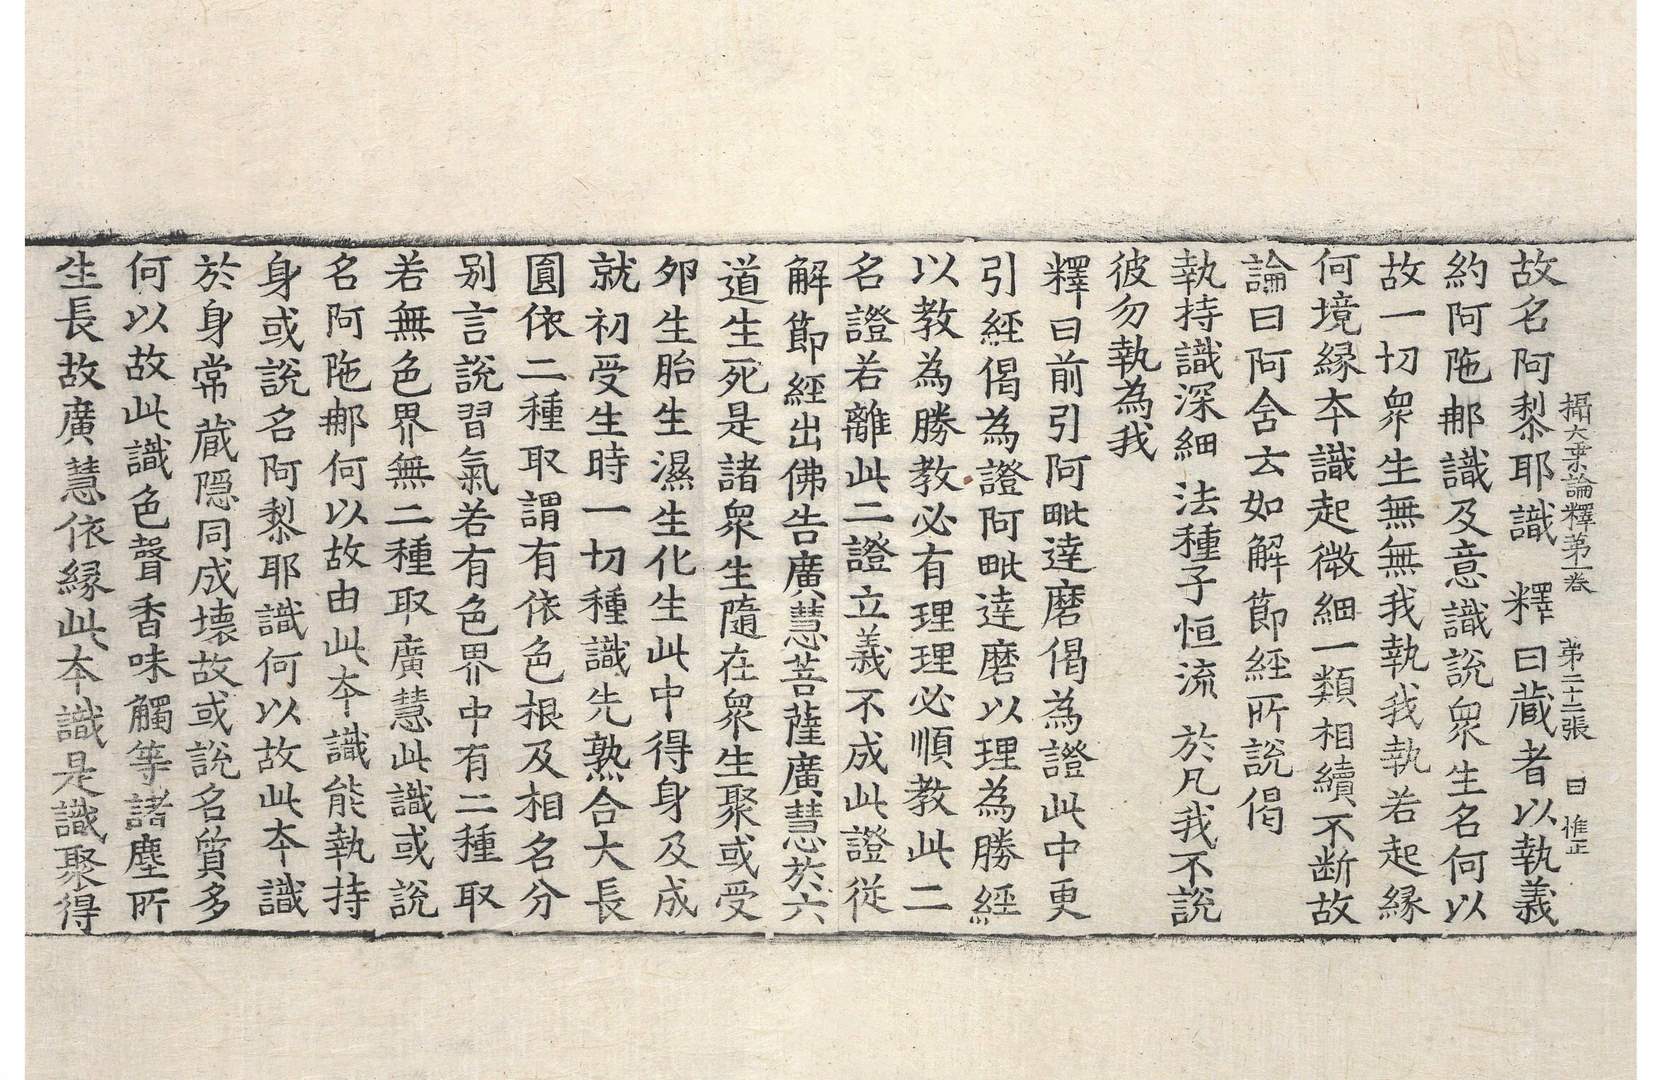 攝大乘論釋第一卷 第二十二張 曰 惟正
故名阿黎耶識 釋曰藏者以執義
約阿陁那識及意識說衆生名何以
故一切衆生無無我執我執若起緣
何境緣本識起微細一類相續不斷故
論曰阿含云如解節經所說偈
執持識深細 法種子恒流 於凡我不說
彼勿執為我
釋曰前引阿毗達磨偈為證此中更
引經偈為證阿毗達磨以理為勝經
以教為勝教必有理理必順教此二
名證若離此二證立義不成此證從
解節經出佛告廣慧菩薩廣慧於六
道生死是諸衆生隨在衆生聚或受
卵生胎生濕生化生此中得身及成
就初受生時一切種識先熟合大長
圓依二種取謂有依色根及相名分
别言說習氣若有色界中有二種取
若無色界無二種取廣慧此識或說
名阿陁那何以故由此本識能執持
身或說名阿黎耶識何以故此本識
於身常藏隱同成壞故或說名質多
何以故此識色聲香味觸等諸塵所
生長故廣慧依緣此本識是識聚得